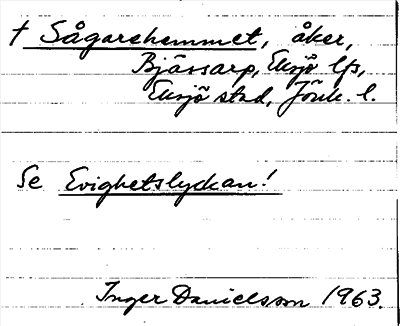 † Sågarehemmet, åker,
Bjässarp, Eksjö lfs,
Eksjö stad, Jönk. l.
Se Evighetslyckan!
Inger Danielsson 1963.